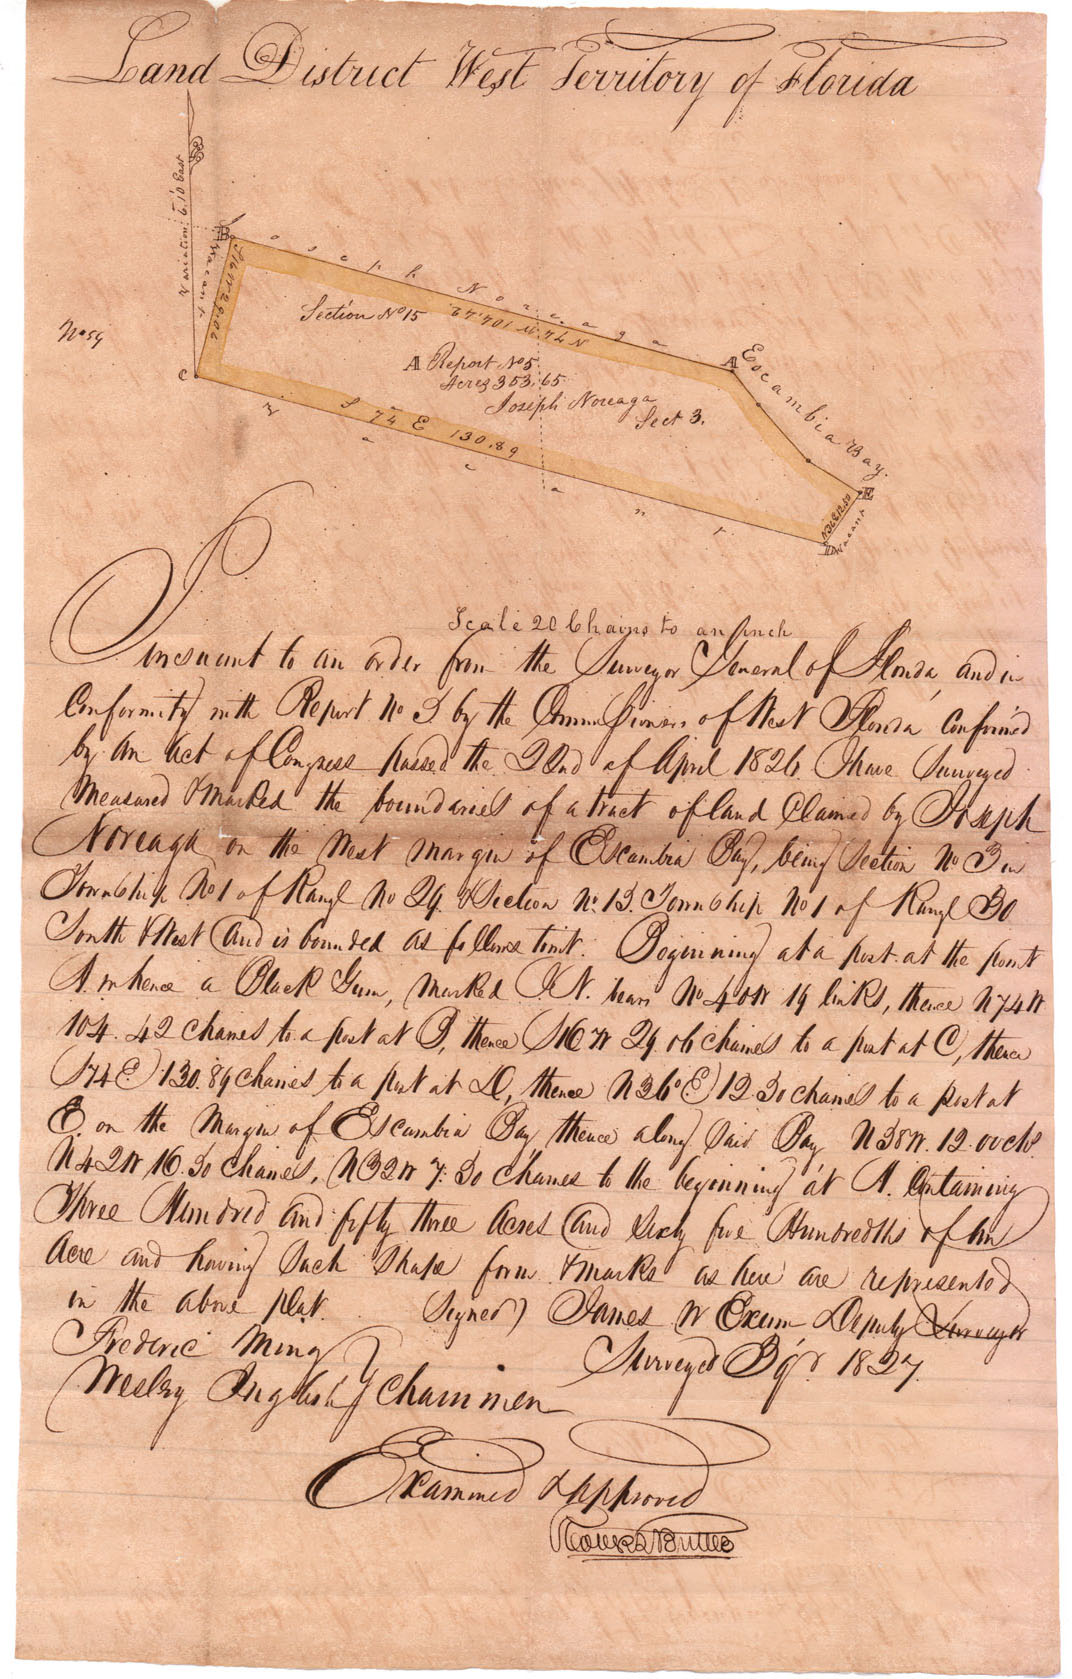 Land District West Territory of Florida
Variation 6.10 East
B
Vacant
S 16 W 29.06
Joseph Noreaga
N 74 W 104.42
Section No 15
No 59
A
Escambia Bay.
A Report No 5
Acres 353.65
Joseph Noreaga
Sect 3.
C
S 74 E 130.89
Vacant
E
N 36 E 12.50
D
Vacant
Scale 20 Chains to an Inch
Pursuant to an order from the Surveyor General of Florida, and in
Conformity with Report No 5 by the Commissioners of West Florida confirmed
by an act of Congress passed the 22nd of April 1826. I have Surveyed
Measured & Marked the boundaries of a tract of land claimed by Joseph
Noreaga on the West margin of Escambia Bay, being Section No 3 in
Township No 1 of Range No 29. & Section No. 15. Township No 1 of Range 30
South & West and is bounded as follows to wit. Beginning at a post at the point
A. whence a Black Gum, marked J.N. bears No 40 W 19 links, thence N 74 W
104.42 chains to a post at B, thence S 16 W 29.06 chains to a post at C, thence
S 74 E. 130.89 chains to a post at D, thence N 36° E 12.50 chains to a post at
E. on the Margin of Escambia Bay, thence along said Bay N 58 W. 12.00 chs.
N 42 W 16.50 chains, N 32 W 7.50 chains to the beginning at A. Containing
Three Hundred and fifty three acres and Sixty five Hundredths of an
Acre and having Such Shape form & marks as here are represented
in the above plat. (Signed) James W Exum Deputy Surveyor
Frederic Ming
Surveyed 1827.
Wesley English } Chainmen
Examined & Approved
Robert Butler